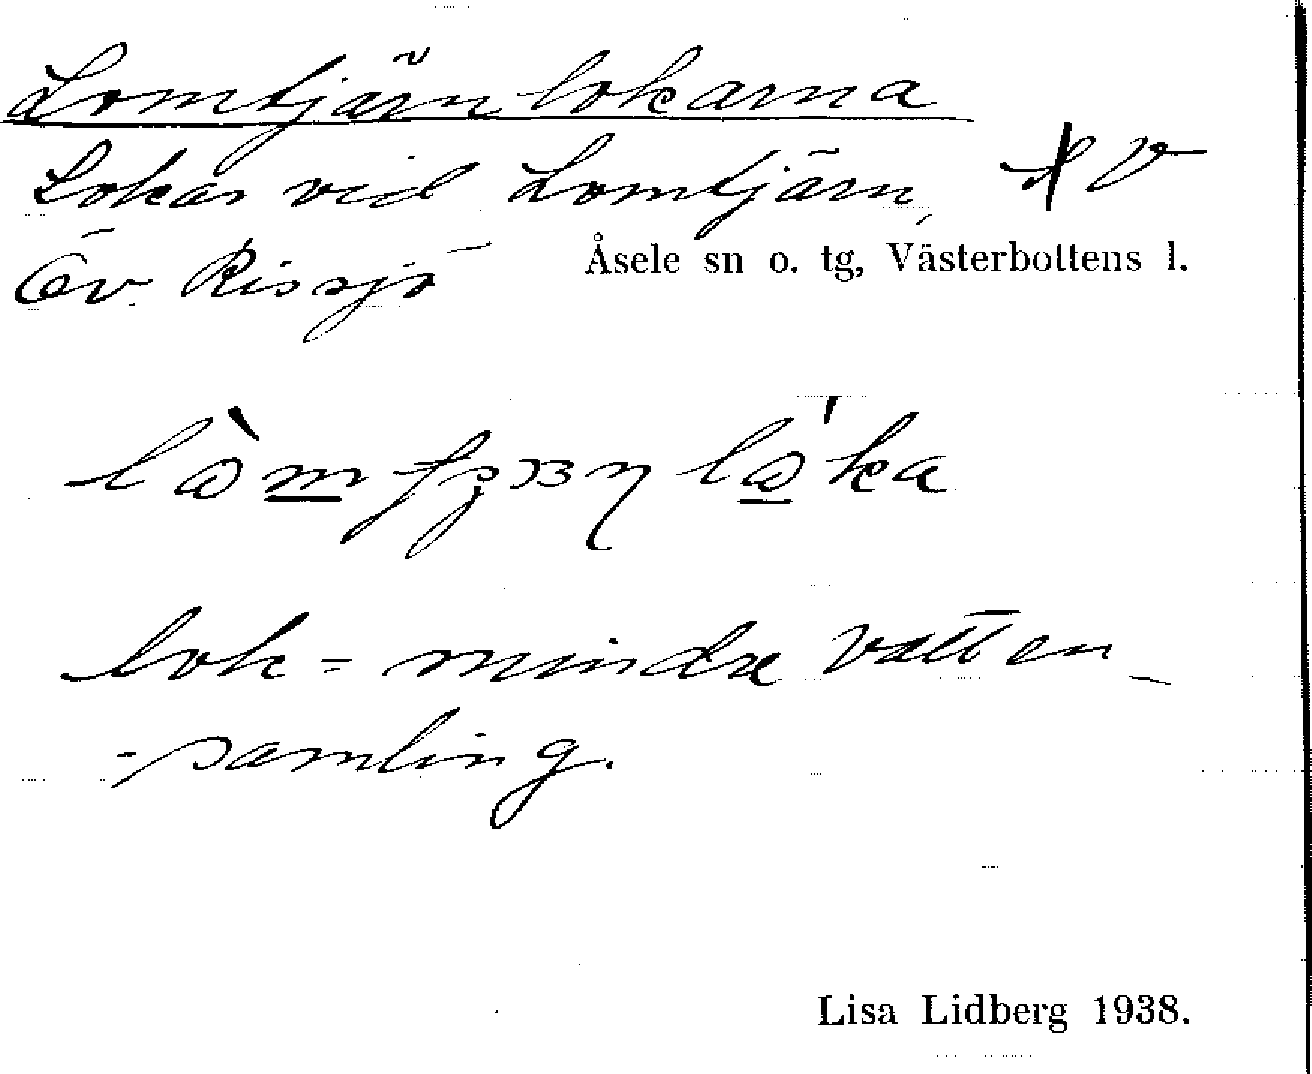 Lomtjärnlokarna
Lokar vid Lomtjärn,
Öv. Rissjö
Åsele sn o. tg, Västerbottens l.
lok = mindre vatten-
-samling.
Lisa Lidberg 1938.